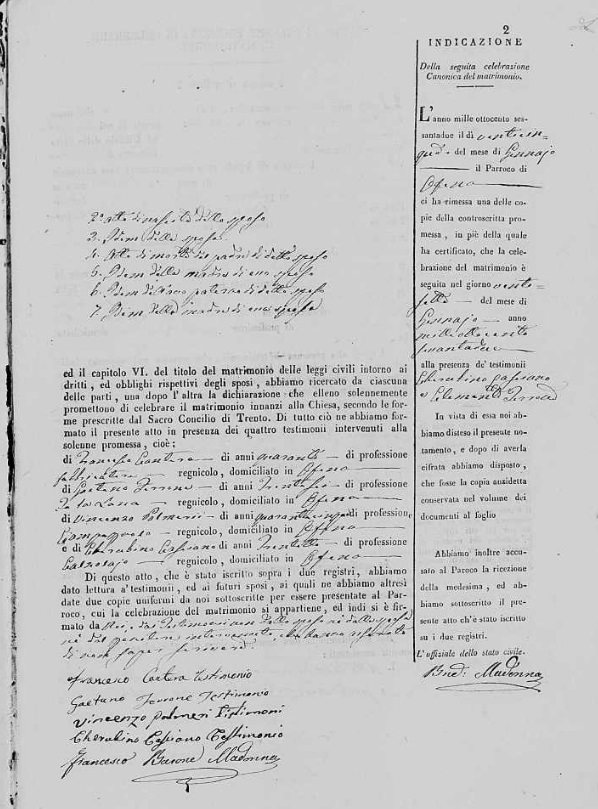 2
2. Atto di nascita dello sposo
3. Idem della sposa
4. Atto di morte del padre di detto sposo
5. Idem della madre di esso sposo
6. Idem dell'avo paterno di detto sposo
7. Idem della madre di essa sposa
ed il capitolo VI. del titolo del matrimonio delle leggi civili intorno ai
dritti, ed obblighi rispettivi degli sposi, abbiamo ricercato da ciascuna
delle parti, una dopo l'altra la dichiarazione che elleno solennemente
promettono di celebrare il matrimonio innanzi alla Chiesa, secondo le for-
me prescritte dal Sacro Concilio di Trento. Di tutto ciò ne abbiamo for-
mato il presente atto in presenza dei quattro testimonii intervenuti alla
solenne promessa, cioè:
di Francesco Cantera di anni quaranta di professione
regnicolo, domiciliato in Ofena
di Gaetano Terrone di anni di professione
regnicolo, domiciliato in Ofena
di Vincenzo Palmeri di anni quarantacinque di professione
regnicolo, domiciliato in Ofena
e di Cherubino Cassiano di anni trentotto di professione
Calzolajo regnicolo, domiciliato in Ofena
Di questo atto, che è stato iscritto sopra i due registri, abbiamo
dato lettura a'testimonii, ed ai futuri sposi, ai quali ne abbiamo altresì
date due copie uniformi da noi sottoscritte per essere presentate al Par-
roco, cui la celebrazione del matrimonio si appartiene, ed indi si è fir-
mato da Noi, dai testimoni non dallo sposo nè dalla sposa
nè dal genitore intervenuto, che hanno
di non saper scrivere
Francesco Cantera Testimonio
Gaetano Terrone Testimonio
Vincenzo Palmeri Tistimoni
Cherubino Cassiano Testimonio
Francesco Barone Madonna
INDICAZIONE
Della seguita celebrazione
Canonica del matrimonio.
L'anno mille ottocento ses-
santadue il dì venticin-
que del mese di Gennajo
il Parroco di
Ofena
ci ha rimessa una delle co-
pie della controscritta pro-
messa, in piè della quale
ha certificato, che la cele-
brazione del matrimonio è
seguita nel giorno venti-
sette del mese di
Gennajo anno
mille ottocento
sessantadue
alla presenza de' testimonii
Cherubino Cassiano
e Clemente
In vista di essa noi ab-
biamo disteso il presente no-
tamento, e dopo di averla
cifrata abbiamo disposto,
che fosse la copia anzidetta
conservata nel volume dei
documenti al foglio
Abbiamo inoltre accu-
sato al Paroco la ricezione
della medesima, ed ab-
biamo sottoscritto il pre-
sente atto ch'è stato iscritto
su i due registri.
L'uffiziale dello stato civile.
Madonna